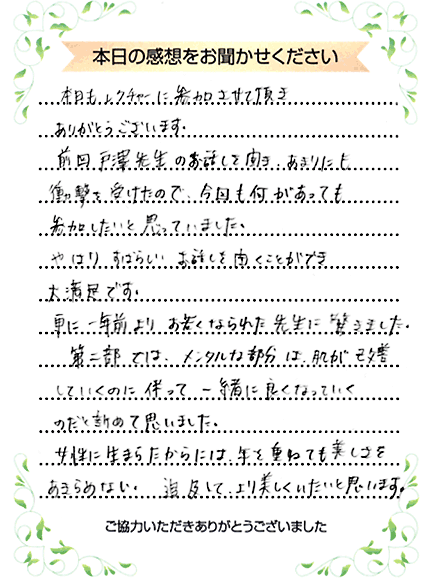 本日の感想をお聞かせください
本日も レクチャーに 参加させて頂き
ありがとうございます。
前回 戸澤先生のお話しを聞き、あまりにも
衝撃を受けたので、今回も何があっても
参加したいと思っていました。
やはり すばらしい お話しを聞くことができ
大満足です。
更に一年前より お若くなられた先生に 驚きました。
第二部では、メンタルな部分は、肌が改善
していくのに 伴って 一緒に良くなっていく
のだと 改めて思いました。
女性に生まらたからには、年を重ねても美しさを
あきらめない。 追及して、より美しくいたいと思います。
ご協力いただきありがとうございました